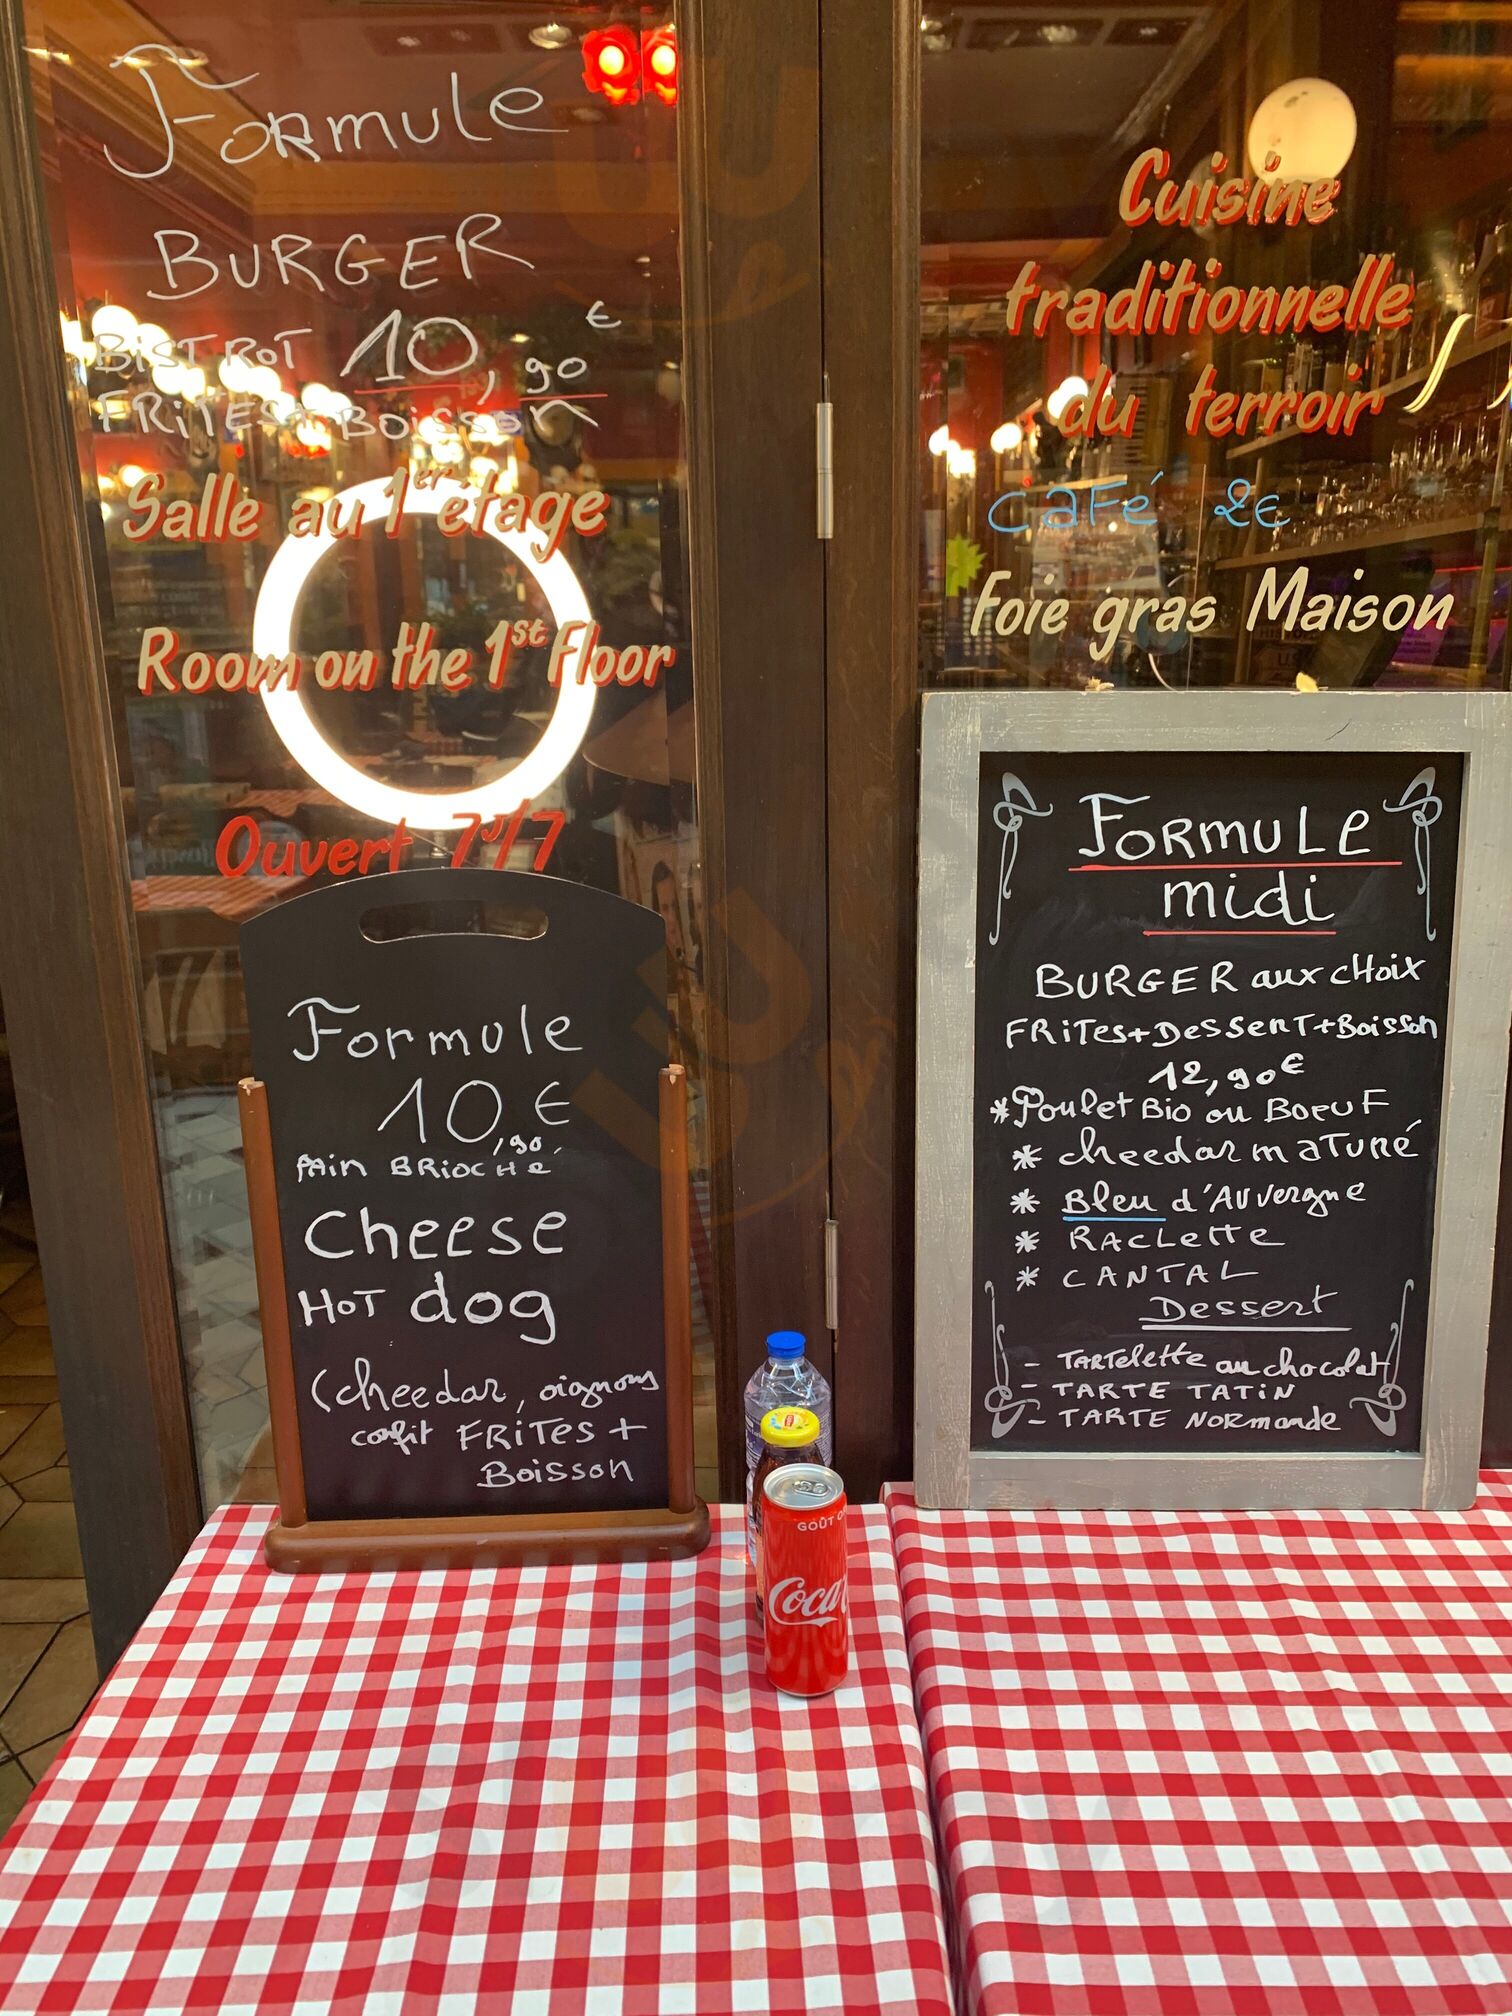 Formule
BURGER
BISTROT 10,90 €
FRITES+BOISSON
Salle au 1er étage
Room on the 1st Floor
Ouvert 7j/7
Formule
10,90 €
PAIN BRIOCHÉ
Cheese
HOT dog
(cheedar, oignons
confit FRITES +
Boisson
Cuisine
traditionnelle
du terroir
CaFé 2€
Foie gras Maison
FORMULE
midi
BURGER aux cHoix
FRITES+DESSERT+Boisson
12,90€
*Poulet Bio ou BOEUF
* cheedar maTuré
* Bleu d'Auvergne
* RACLETTE
* CANTAL
Dessert
- TARTELETTE au chocolat
- TARTE TATIN
- TARTE NORMANDE
GOÛT O
Coca